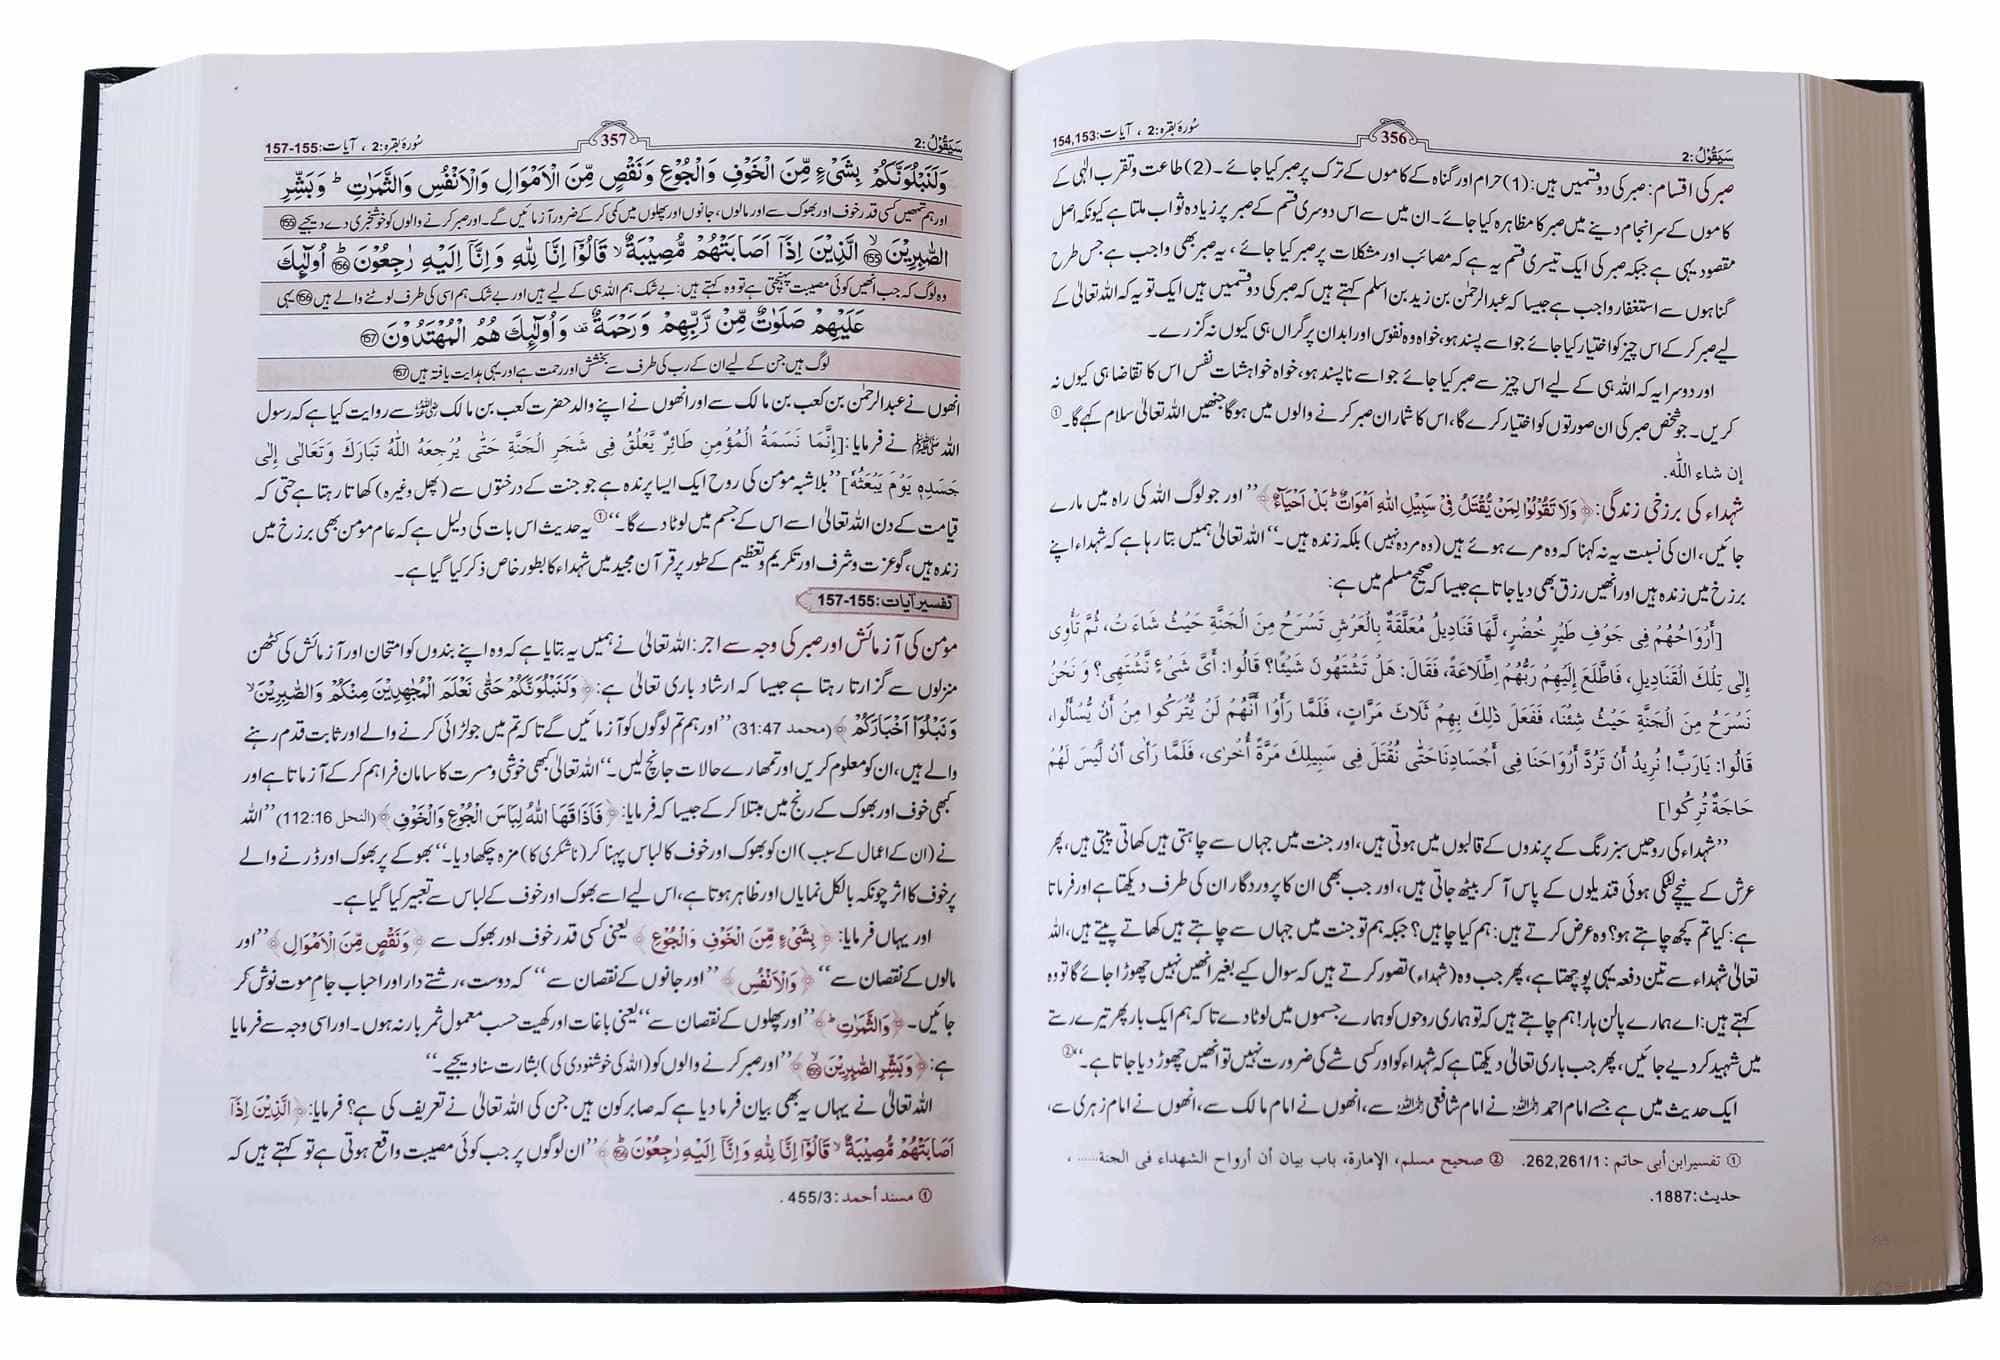 سورۂ بقرہ:2 ، آیات:154,153
356
سَیَقُوْلُ:2
صبر کی اقسام: صبر کی دو قسمیں ہیں: (1) حرام اور گناہ کے کاموں کے ترک پر صبر کیا جائے۔ (2) طاعت و تقرب الٰہی کے
کاموں کے سرانجام دینے میں صبر کا مظاہرہ کیا جائے۔ ان میں سے اس دوسری قسم کے صبر پر زیادہ ثواب ملتا ہے کیونکہ اصل
مقصود یہی ہے جبکہ صبر کی ایک تیسری قسم یہ ہے کہ مصائب اور مشکلات پر صبر کیا جائے، یہ صبر بھی واجب ہے جس طرح
گناہوں سے استغفار واجب ہے جیسا کہ عبدالرحمٰن بن زید بن اسلم کہتے ہیں کہ صبر کی دو قسمیں ہیں ایک تو یہ کہ اللہ تعالیٰ کے
لیے صبر کر کے اس چیز کو اختیار کیا جائے جو اسے پسند ہو، خواہ وہ نفوس اور ابدان پر گراں ہی کیوں نہ گزرے۔
اور دوسرا یہ کہ اللہ ہی کے لیے اس چیز سے صبر کیا جائے جو اسے ناپسند ہو، خواہ خواہشات نفس اس کا تقاضا ہی کیوں نہ
کریں۔ جو شخص صبر کی ان صورتوں کو اختیار کرے گا، اس کا شمار ان صبر کرنے والوں میں ہوگا جنھیں اللہ تعالیٰ سلام کہے گا۔ ①
إن شاء اللّٰه.
شہداء کی برزخی زندگی: ﴿ وَلَا تَقُوْلُوْا لِمَنْ یُّقْتَلُ فِیْ سَبِیْلِ اللّٰهِ اَمْوَاتٌ ؕ بَلْ اَحْیَآءٌ ﴾ ’’اور جو لوگ اللہ کی راہ میں مارے
جائیں، ان کی نسبت یہ نہ کہنا کہ وہ مرے ہوئے ہیں (وہ مردہ نہیں) بلکہ زندہ ہیں۔‘‘ اللہ تعالیٰ ہمیں بتا رہا ہے کہ شہداء اپنے
برزخ میں زندہ ہیں اور انھیں رزق بھی دیا جاتا ہے جیسا کہ صحیح مسلم میں ہے:
[أَرْوَاحُهُمْ فِی جَوْفِ طَیْرٍ خُضْرٍ، لَّهَا قَنَادِیلُ مُعَلَّقَةٌ بِالْعَرْشِ تَسْرَحُ مِنَ الْجَنَّةِ حَیْثُ شَاءَتْ، ثُمَّ تَأْوِی
إِلٰی تِلْكَ الْقَنَادِیلِ، فَاطَّلَعَ إِلَیْهِمْ رَبُّهُمُ اطِّلَاعَةً، فَقَالَ: هَلْ تَشْتَهُونَ شَیْئًا؟ قَالُوا: أَیَّ شَیْءٍ نَّشْتَهِی؟ وَنَحْنُ
نَسْرَحُ مِنَ الْجَنَّةِ حَیْثُ شِئْنَا، فَفَعَلَ ذٰلِكَ بِهِمْ ثَلَاثَ مَرَّاتٍ، فَلَمَّا رَأَوْا أَنَّهُمْ لَنْ یُّتْرَكُوا مِنْ أَنْ یُّسْأَلُوا،
قَالُوا: یَارَبِّ! نُرِیدُ أَنْ تَرُدَّ أَرْوَاحَنَا فِی أَجْسَادِنَا حَتّٰی نُقْتَلَ فِی سَبِیلِكَ مَرَّةً أُخْرٰی، فَلَمَّا رَأٰی أَنْ لَّیْسَ لَهُمْ
حَاجَةٌ تُرِكُوا]
’’شہداء کی روحیں سبز رنگ کے پرندوں کے قالبوں میں ہوتی ہیں، اور جنت میں جہاں سے چاہتی ہیں کھاتی پیتی ہیں، پھر
عرش کے نیچے لٹکی ہوئی قندیلوں کے پاس آ کر بیٹھ جاتی ہیں، اور جب بھی ان کا پروردگار ان کی طرف دیکھتا ہے اور فرماتا
ہے: کیا تم کچھ چاہتے ہو؟ وہ عرض کرتے ہیں: ہم کیا چاہیں؟ جبکہ ہم تو جنت میں جہاں سے چاہتے ہیں کھاتے پیتے ہیں، اللہ
تعالیٰ شہداء سے تین دفعہ یہی پوچھتا ہے، پھر جب وہ (شہداء) تصور کرتے ہیں کہ سوال کیے بغیر انھیں نہیں چھوڑا جائے گا تو وہ
کہتے ہیں: اے ہمارے پالن ہار! ہم چاہتے ہیں کہ تو ہماری روحوں کو ہمارے جسموں میں لوٹا دے تاکہ ہم ایک بار پھر تیرے رستے
میں شہید کر دیے جائیں، پھر جب باری تعالیٰ دیکھتا ہے کہ شہداء کو اور کسی شے کی ضرورت نہیں تو انھیں چھوڑ دیا جاتا ہے۔‘‘②
ایک حدیث میں ہے جسے امام احمد رحمہ اللہ نے امام شافعی رحمہ اللہ سے، انھوں نے امام مالک سے، انھوں نے امام زہری سے،
① تفسیر ابن أبی حاتم : 262,261/1. ② صحیح مسلم، الإمارۃ، باب بیان أن أرواح الشهداء فی الجنة...... ،
حدیث:1887.
سورۂ بقرہ:2 ، آیات:155-157
357
سَیَقُوْلُ:2
وَلَنَبْلُوَنَّكُمْ بِشَیْءٍ مِّنَ الْخَوْفِ وَالْجُوْعِ وَنَقْصٍ مِّنَ الْاَمْوَالِ وَالْاَنْفُسِ وَالثَّمَرٰتِ ؕ وَبَشِّرِ
اور ہم تمھیں کسی قدر خوف اور بھوک سے اور مالوں، جانوں اور پھلوں میں کمی کر کے ضرور آزمائیں گے۔ اور صبر کرنے والوں کو خوشخبری دے دیجیے 155
الصّٰبِرِیْنَ 155 الَّذِیْنَ اِذَاۤ اَصَابَتْهُمْ مُّصِیْبَةٌ ۙ قَالُوْۤا اِنَّا لِلّٰهِ وَاِنَّاۤ اِلَیْهِ رٰجِعُوْنَ ؕ 156 اُولٰٓئِكَ
وہ لوگ کہ جب انھیں کوئی مصیبت پہنچتی ہے تو وہ کہتے ہیں: بے شک ہم اللہ ہی کے لیے ہیں اور بے شک ہم اسی کی طرف لوٹنے والے ہیں 156 یہی
عَلَیْهِمْ صَلَوٰتٌ مِّنْ رَّبِّهِمْ وَرَحْمَةٌ ۫ وَاُولٰٓئِكَ هُمُ الْمُهْتَدُوْنَ 157
لوگ ہیں جن کے لیے ان کے رب کی طرف سے بخشش اور رحمت ہے اور یہی ہدایت یافتہ ہیں 157
انھوں نے عبدالرحمٰن بن کعب بن مالک سے اور انھوں نے اپنے والد حضرت کعب بن مالک رضی اللہ عنہ سے روایت کیا ہے کہ رسول
اللہ ﷺ نے فرمایا: [إِنَّمَا نَسَمَةُ الْمُؤْمِنِ طَائِرٌ یَّعْلُقُ فِی شَجَرِ الْجَنَّةِ حَتّٰی یُرْجِعَهُ اللّٰهُ تَبَارَكَ وَتَعَالٰی إِلٰی
جَسَدِهٖ یَوْمَ یَبْعَثُهُ] ’’بلاشبہ مؤمن کی روح ایک ایسا پرندہ ہے جو جنت کے درختوں سے (پھل وغیرہ) کھاتا رہتا ہے حتی کہ
قیامت کے دن اللہ تعالیٰ اسے اس کے جسم میں لوٹا دے گا۔‘‘① یہ حدیث اس بات کی دلیل ہے کہ عام مؤمن بھی برزخ میں
زندہ ہیں، گو عزت و شرف اور تکریم و تعظیم کے طور پر قرآن مجید میں شہداء کا بطور خاص ذکر کیا گیا ہے۔
تفسیر آیات:155-157
مؤمن کی آزمائش اور صبر کی وجہ سے اجر: اللہ تعالیٰ نے ہمیں یہ بتایا ہے کہ وہ اپنے بندوں کو امتحان اور آزمائش کی کٹھن
منزلوں سے گزارتا رہتا ہے جیسا کہ ارشاد باری تعالیٰ ہے: ﴿ وَلَنَبْلُوَنَّكُمْ حَتّٰی نَعْلَمَ الْمُجٰهِدِیْنَ مِنْكُمْ وَالصّٰبِرِیْنَ ۙ
وَنَبْلُوَا۟ اَخْبَارَكُمْ ﴾ (محمد 31:47) ’’اور ہم تم لوگوں کو آزمائیں گے تاکہ تم میں جو لڑائی کرنے والے اور ثابت قدم رہنے
والے ہیں، ان کو معلوم کریں اور تمھارے حالات جانچ لیں۔‘‘ اللہ تعالیٰ کبھی خوشی و مسرت کا سامان فراہم کر کے آزماتا ہے اور
کبھی خوف اور بھوک کے رنج میں مبتلا کر کے جیسا کہ فرمایا: ﴿ فَاَذَاقَهَا اللّٰهُ لِبَاسَ الْجُوْعِ وَالْخَوْفِ ﴾ (النحل 112:16) ’’اللہ
نے (ان کے اعمال کے سبب) ان کو بھوک اور خوف کا لباس پہنا کر (ناشکری کا) مزہ چکھا دیا۔‘‘ بھوکے پر بھوک اور ڈرنے والے
پر خوف کا اثر چونکہ بالکل نمایاں اور ظاہر ہوتا ہے، اس لیے اسے بھوک اور خوف کے لباس سے تعبیر کیا گیا ہے۔
اور یہاں فرمایا: ﴿ بِشَیْءٍ مِّنَ الْخَوْفِ وَالْجُوْعِ ﴾ یعنی کسی قدر خوف اور بھوک سے ﴿ وَنَقْصٍ مِّنَ الْاَمْوَالِ ﴾ ’’اور
مالوں کے نقصان سے‘‘ ﴿ وَالْاَنْفُسِ ﴾ ’’اور جانوں کے نقصان سے‘‘ کہ دوست، رشتے دار اور احباب جامِ موت نوش کر
جائیں۔ ﴿ وَالثَّمَرٰتِ ؕ ﴾ ’’اور پھلوں کے نقصان سے‘‘ یعنی باغات اور کھیت حسب معمول ثمر بار نہ ہوں۔ اور اسی وجہ سے فرمایا
ہے: ﴿ وَبَشِّرِ الصّٰبِرِیْنَ ۙ 155 ﴾ ’’اور صبر کرنے والوں کو (اللہ کی خوشنودی کی) بشارت سنا دیجیے۔‘‘
اللہ تعالیٰ نے یہاں یہ بھی بیان فرما دیا ہے کہ صابر کون ہیں جن کی اللہ تعالیٰ نے تعریف کی ہے؟ فرمایا: ﴿ الَّذِیْنَ اِذَاۤ
اَصَابَتْهُمْ مُّصِیْبَةٌ ۙ قَالُوْۤا اِنَّا لِلّٰهِ وَاِنَّاۤ اِلَیْهِ رٰجِعُوْنَ ؕ 156 ﴾ ’’ان لوگوں پر جب کوئی مصیبت واقع ہوتی ہے تو کہتے ہیں کہ
① مسند أحمد : 455/3 .